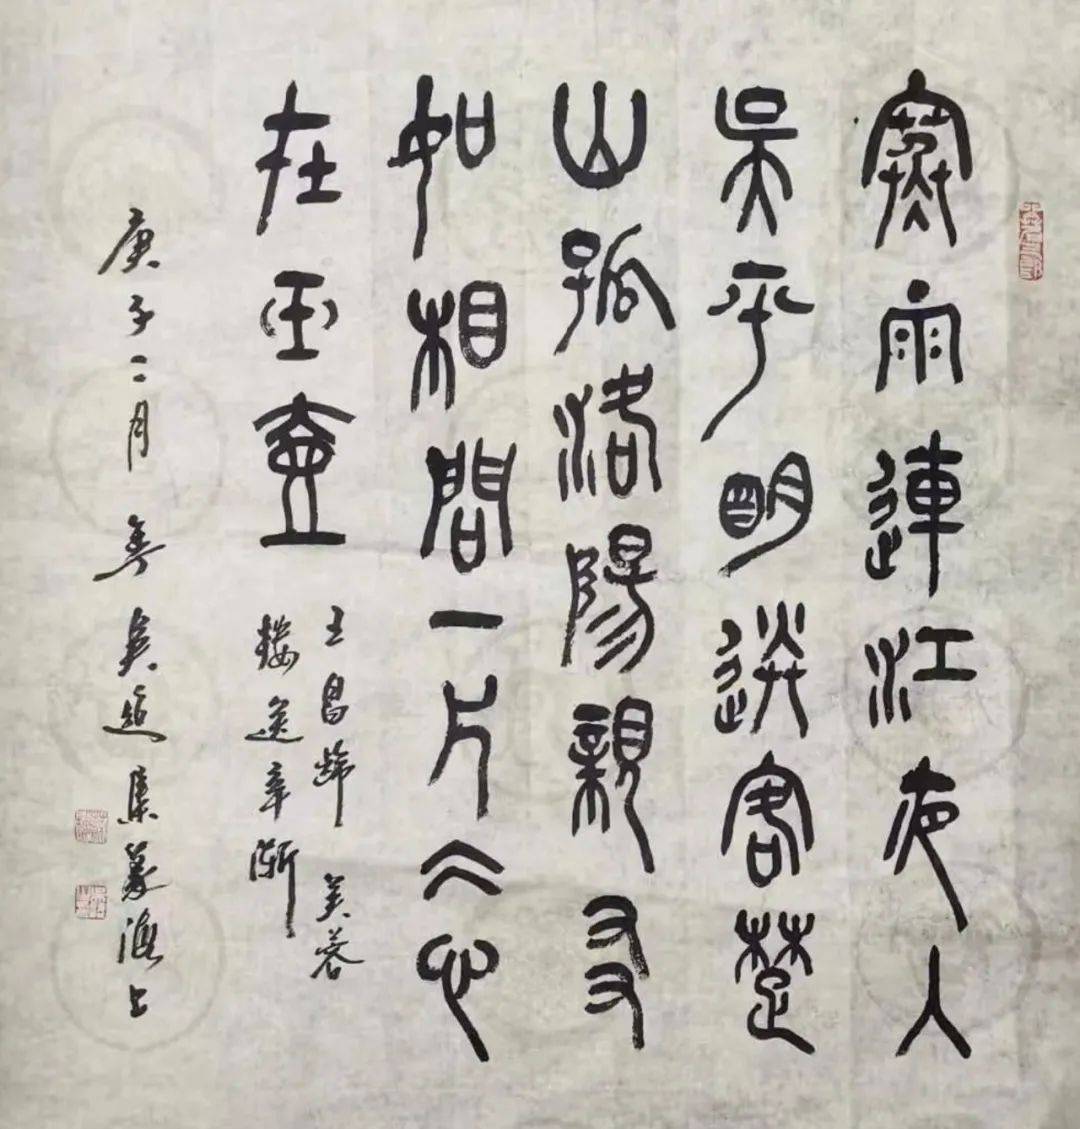 寒雨連江夜入
吳平明送客楚
山孤洛陽親友
如相問一片仌心
在玉壺
王昌齡 芙蓉
樓送辛漸
庚子二月 吳超集篆海上